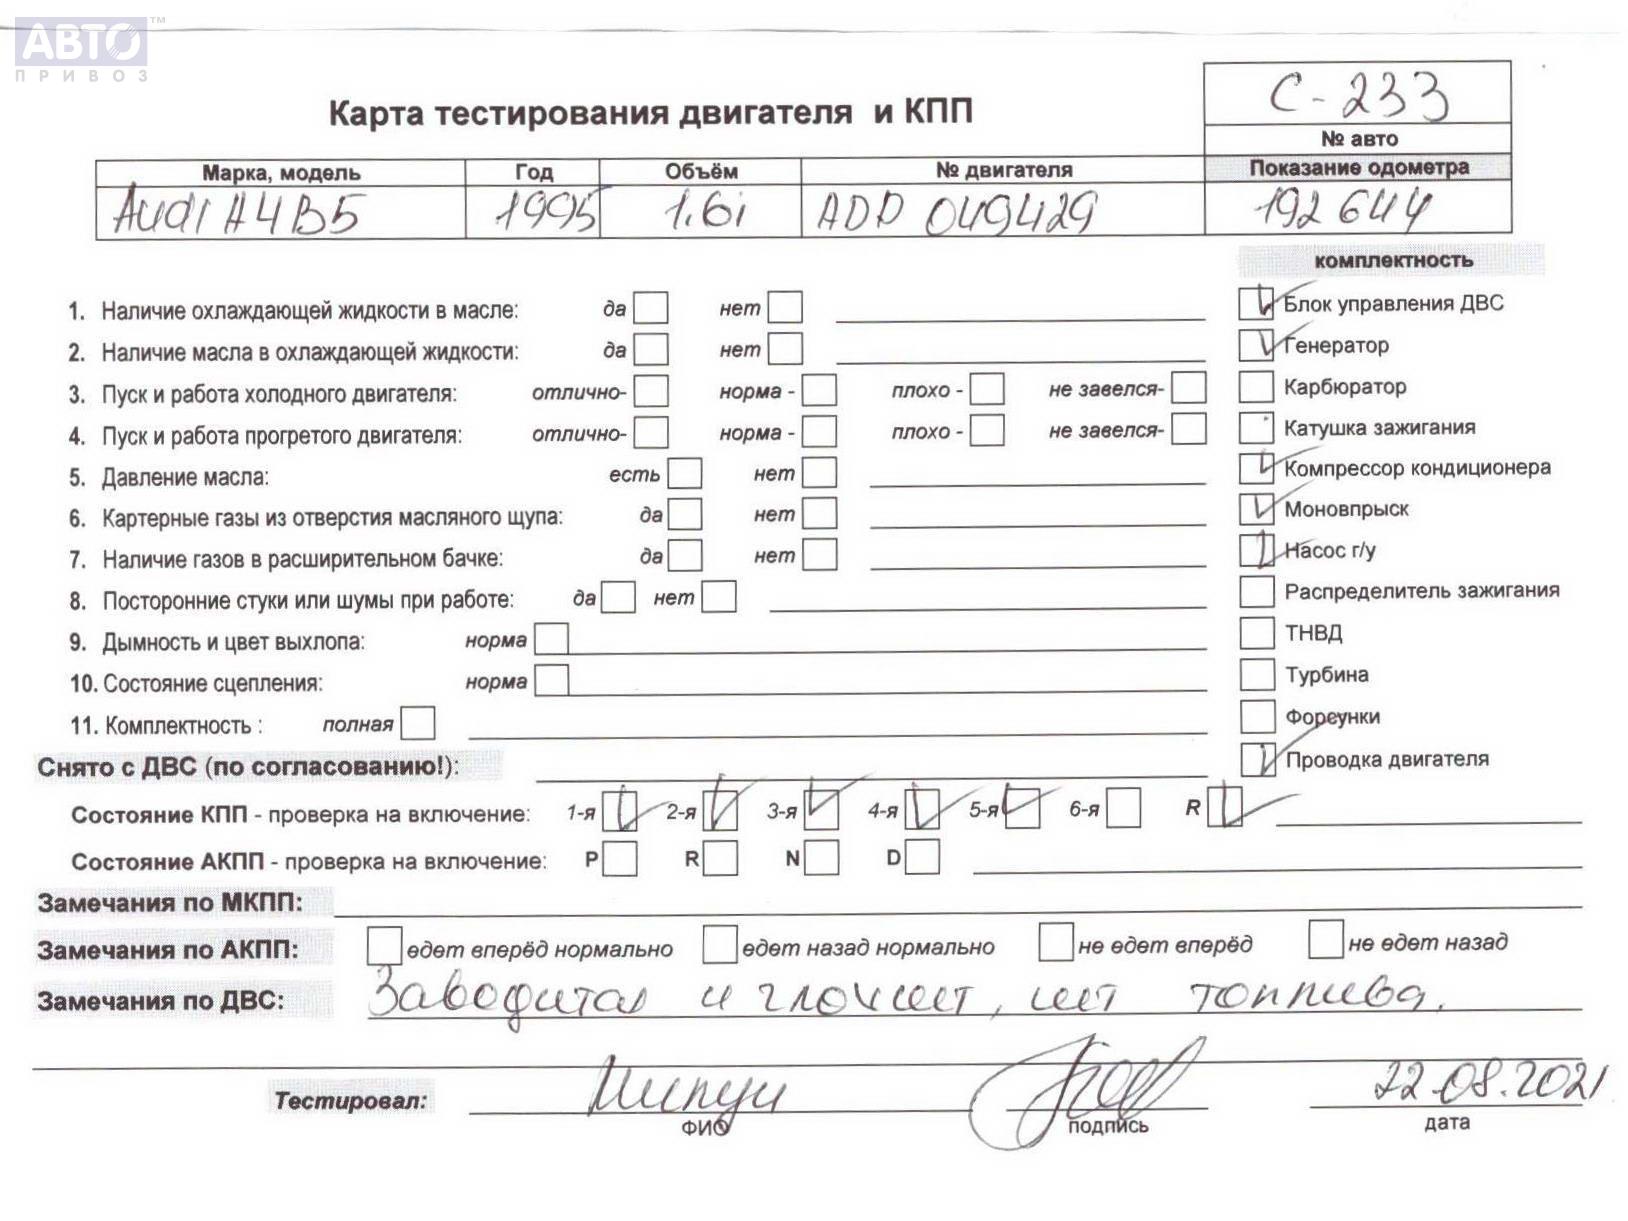 АВТО™
ПРИВОЗ
С-233
Карта тестирования двигателя и КПП
№ авто
Марка, модель Год Объём № двигателя Показание одометра
Audi A4B5 1995 1.6i ADP 049429 192644
комплектность
1. Наличие охлаждающей жидкости в масле: да нет
Блок управления ДВС
2. Наличие масла в охлаждающей жидкости: да нет
Генератор
3. Пуск и работа холодного двигателя: отлично- норма - плохо - не завелся-
Карбюратор
4. Пуск и работа прогретого двигателя: отлично- норма - плохо - не завелся-
Катушка зажигания
5. Давление масла: есть нет
Компрессор кондиционера
6. Картерные газы из отверстия масляного щупа: да нет
Моновпрыск
7. Наличие газов в расширительном бачке: да нет
Насос г/у
8. Посторонние стуки или шумы при работе: да нет
Распределитель зажигания
9. Дымность и цвет выхлопа: норма
ТНВД
10. Состояние сцепления: норма
Турбина
11. Комплектность : полная
Форсунки
Снято с ДВС (по согласованию!):
Проводка двигателя
Состояние КПП - проверка на включение: 1-я 2-я 3-я 4-я 5-я 6-я R
Состояние АКПП - проверка на включение: P R N D
Замечания по МКПП:
Замечания по АКПП: едет вперёд нормально едет назад нормально не едет вперёд не едет назад
Замечания по ДВС: Заводится и глохнет, нет топлива.
Тестировал: 22.08.2021
ФИО подпись дата